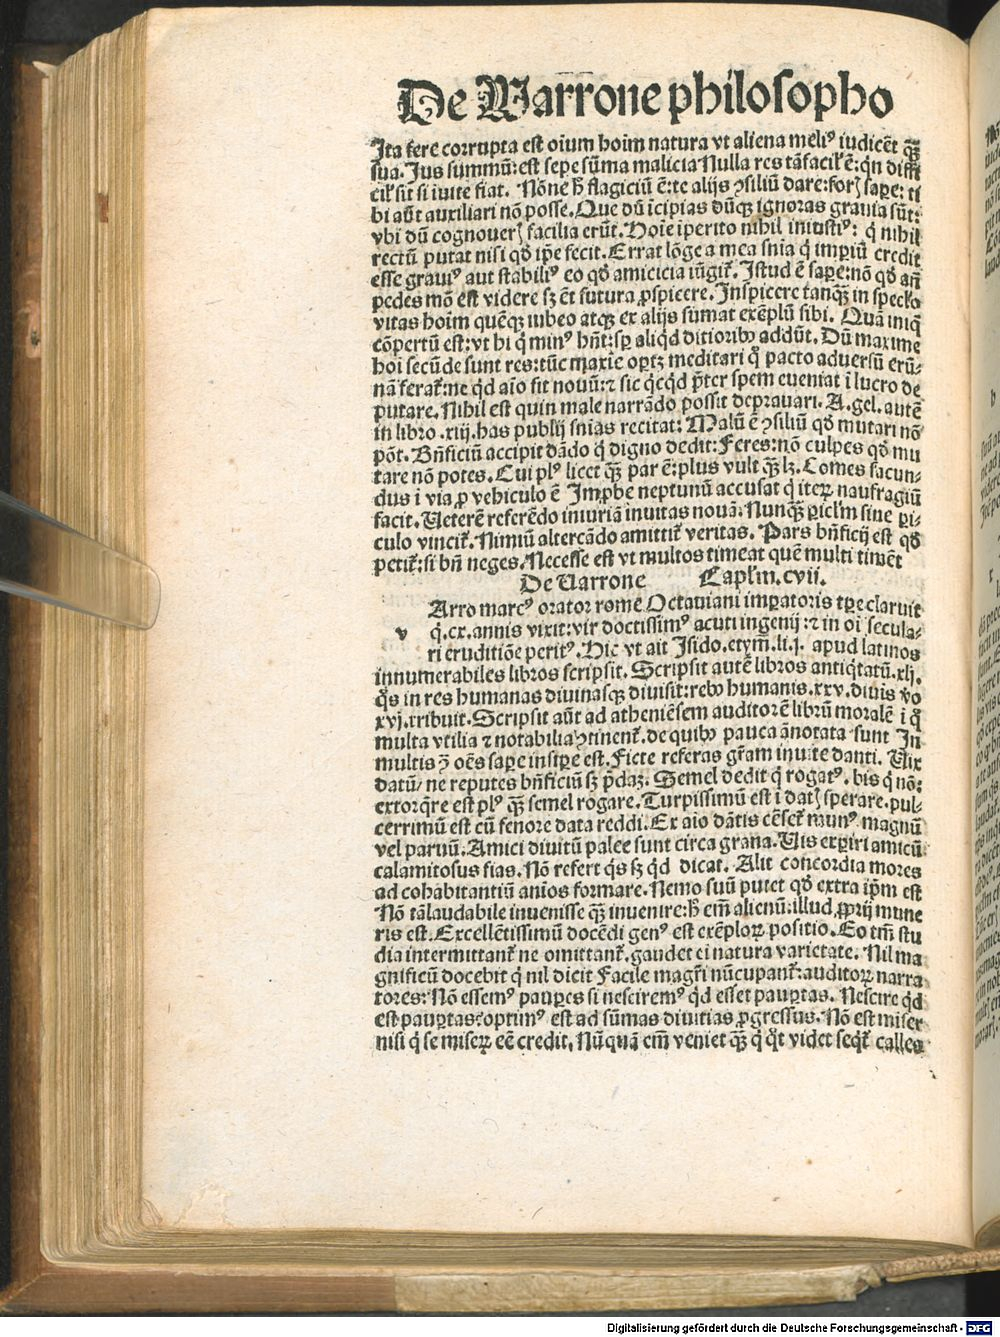 De Warrone philosopho
Ita fere corrupta est oium hoim natura vt aliena meliꝰ iudicēt q̄ꝫ
sua. Jus summū: est sepe sūma malicia Nulla res tā facilꝭ ē: qn diffi
cilꝭ sit si īuite fiat. Nōne h̄ flagiciū ē: te alijs ↄsiliū dare: forꝭ saꝑe: ti
bi aūt auxiliari nō posse. Que dū īcipias dūqꝫ ignoras grauia sūt:
vbi dū cognouerꝭ facilia erūt. Hoīe īperito nihil iniustiꝰ: q̇ nihil
rectū putat nisi qd̄ ip̄e fecit. Errat lōge a mea snīa q̇ imꝑiū credit
esse grauiꝰ aut stabiliꝰ eo qd̄ amicicia iūgit᷑. Istud ē saꝑe: nō qd̄ añ
pedes mō est videre sꝫ et̄ futura ꝓspicere. Inspicere tanq̄ꝫ in specƚo
vitas hoim quēqꝫ iubeo atqꝫ ex alijs sumat exēplū sibi. Quā iniq̄
cōpertū est: vt hi q̇ minꝰ hn̄t: sꝑ aliqd̄ ditioribꝰ addūt. Dū maxime
hoī secūde sunt res: tūc maxīe oꝑtꝫ meditari q̊ pacto aduersū erū-
nā ferat᷑: ne qd̄ aīo sit nouū: ⁊ sic q̇cqd̄ p̄ter spem eueniat ī lucro de
putare. Nihil est quin male narrādo possit deprauari. A. gel. autē
in libro .xiij. has publij snīas recitat: Malū ē ↄsiliū qd̄ mutari nō
pōt. Bn̄ficiū accipit dādo q̇ digno dedit: Feres: nō culpes qd̄ mu
tare nō potes. Cui plꝰ licet q̄ꝫ par ē: plus vult q̄ꝫ lꝫ. Comes facun-
dus ī via ꝓ vehiculo ē Imꝓbe neptunū accusat q̇ iteꝝ naufragiū
facit. Ueterē referēdo iniuriā inuitas nouā: Nunq̄ꝫ ꝑicƚm sine ꝑi-
culo vincit᷑. Nimiū altercādo amittit᷑ veritas. Pars bn̄ficij est qd̄
petit᷑: si bn̄ neges. Necesse est vt multos timeat quē multi timēt
De Uarrone Capƚm. cvii.
Arro marcꝰ orator rome Octauiani imꝑatoris tꝑe claruit
v q̇. cx. annis vixit: vir doctissimꝰ acuti ingenij: ⁊ in oī secula-
ri eruditiōe peritꝰ. Hic vt ait Isido. etym̄. li. j. apud latinos
innumerabiles libros scripsit. Scripsit autē libros antiq̇tatū. xlj.
q̊s in res humanas diuinasqꝫ diuisit: rebꝰ humanis. xxv. diuīs v̊o
xvj. tribuit. Scripsit aūt ad atheniēsem auditorē librū moralē ī q̊
multa vtilia ⁊ notabilia ↄtinent᷑. de quibꝰ pauca ānotata sunt In
multis ↄ̄ oēs saꝑe insiꝑe est. Ficte referas gr̄am inuite danti. Uix
datū/ ne reputes bn̄ficiū sꝫ p̄daꝫ. Semel dedit q̇ rogatꝰ. bis q̇ nō:
extorq̄re est plꝰ q̄ꝫ semel rogare. Turpissimū est ī datꝭ sperare. pul-
cerrimū est cū fenore data reddi. Ex aīo dātis cēset᷑ munꝰ magnū
vel paruū. Amici diuitū palee sunt circa grana. Uis exꝑiri amicū:
calamitosus fias. Nō refert q̇s sꝫ qd̄ dicat. Alit concordia mores
ad cohabitantiū aīos formare. Nemo suū putet qd̄ extra ip̄m est
Nō tā laudabile inuenisse q̄ꝫ inuenire: h̄ em̄ alienū: illud ꝓprij mune
ris est. Excellētissimū docēdi genꝰ est exēploꝝ positio. Eo tm̄ stu
dia intermittant᷑ ne omittant᷑. gaudet ei natura varietate. Nil ma
gnificū docebit q̇ nil dicit Facile magr̄i nūcupant᷑: auditoꝝ narra
tores: Nō essemꝰ pauꝑes si nesciremꝰ qd̄ esset pauꝑtas. Nescire qd̄
est pauꝑtas: optimꝰ est ad sūmas diuitias ꝓgressus. Nō est miser
nisi q̇ se miseꝝ eē credit. Nūquā em̄ veniet q̄ꝫ q̇ q̊t videt seqt᷑ calles
Digitalisierung gefördert durch die Deutsche Forschungsgemeinschaft - DFG